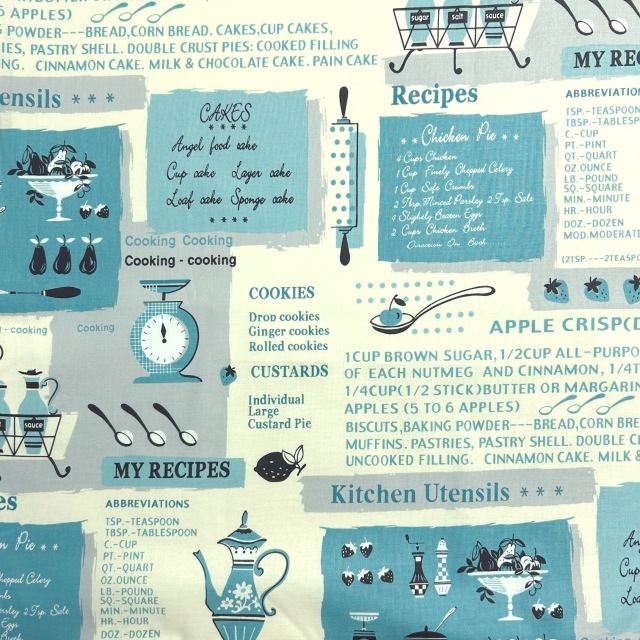 5 APPLES)
POWDER---BREAD,CORN BREAD. CAKES,CUP CAKES,
IES, PASTRY SHELL. DOUBLE CRUST PIES: COOKED FILLING
NG. CINNAMON CAKE. MILK & CHOCOLATE CAKE. PAIN CAKE
sugar salt sauce
MY REC
ensils * * *
CAKES
* * * *
Angel food cake
Cup cake Layer cake
Loaf cake Sponge cake
* * * *
Recipes
* * Chicken Pie * *
4 Cups Chicken
1 Cup Finely Chopped Celery
1 Cup Soft Crumbs
2 Tbsp. Minced Parsley 2 Tsp. Salt
4 Slightly Beaten Eggs
2 Cups Chicken Broth
Direction On Book
ABBREVIATION
TSP.-TEASPOON
TBSP.-TABLESP
C.-CUP
PT.-PINT
QT.-QUART
OZ.OUNCE
LB.-POUND
SQ.-SQUARE
MIN.-MINUTE
HR.-HOUR
DOZ.-DOZEN
MOD.MODERATE
(2TSP.---2TEASPO
Cooking Cooking
Cooking - cooking
g - cooking
Cooking
COOKIES
Drop cookies
Ginger cookies
Rolled cookies
CUSTARDS
Individual
Large
Custard Pie
APPLE CRISP(D
1CUP BROWN SUGAR,1/2CUP ALL-PURPO
OF EACH NUTMEG AND CINNAMON,1/4T
1/4CUP(1/2 STICK)BUTTER OR MARGARIN
APPLES (5 TO 6 APPLES)
BISCUTS,BAKING POWDER---BREAD,CORN BR
MUFFINS. PASTRIES, PASTRY SHELL. DOUBLE C
UNCOOKED FILLING. CINNAMON CAKE. MILK &
salt sauce
MY RECIPES
Kitchen Utensils * * *
es
n Pie * *
hopped Celery
mbs
arsley 2 Tsp. Salt
Eggs
ABBREVIATIONS
TSP.-TEASPOON
TBSP.-TABLESPOON
C.-CUP
PT.-PINT
QT.-QUART
OZ.OUNCE
LB.-POUND
SQ.-SQUARE
MIN.-MINUTE
HR.-HOUR
DOZ.-DOZEN
An
Cup
Loaf